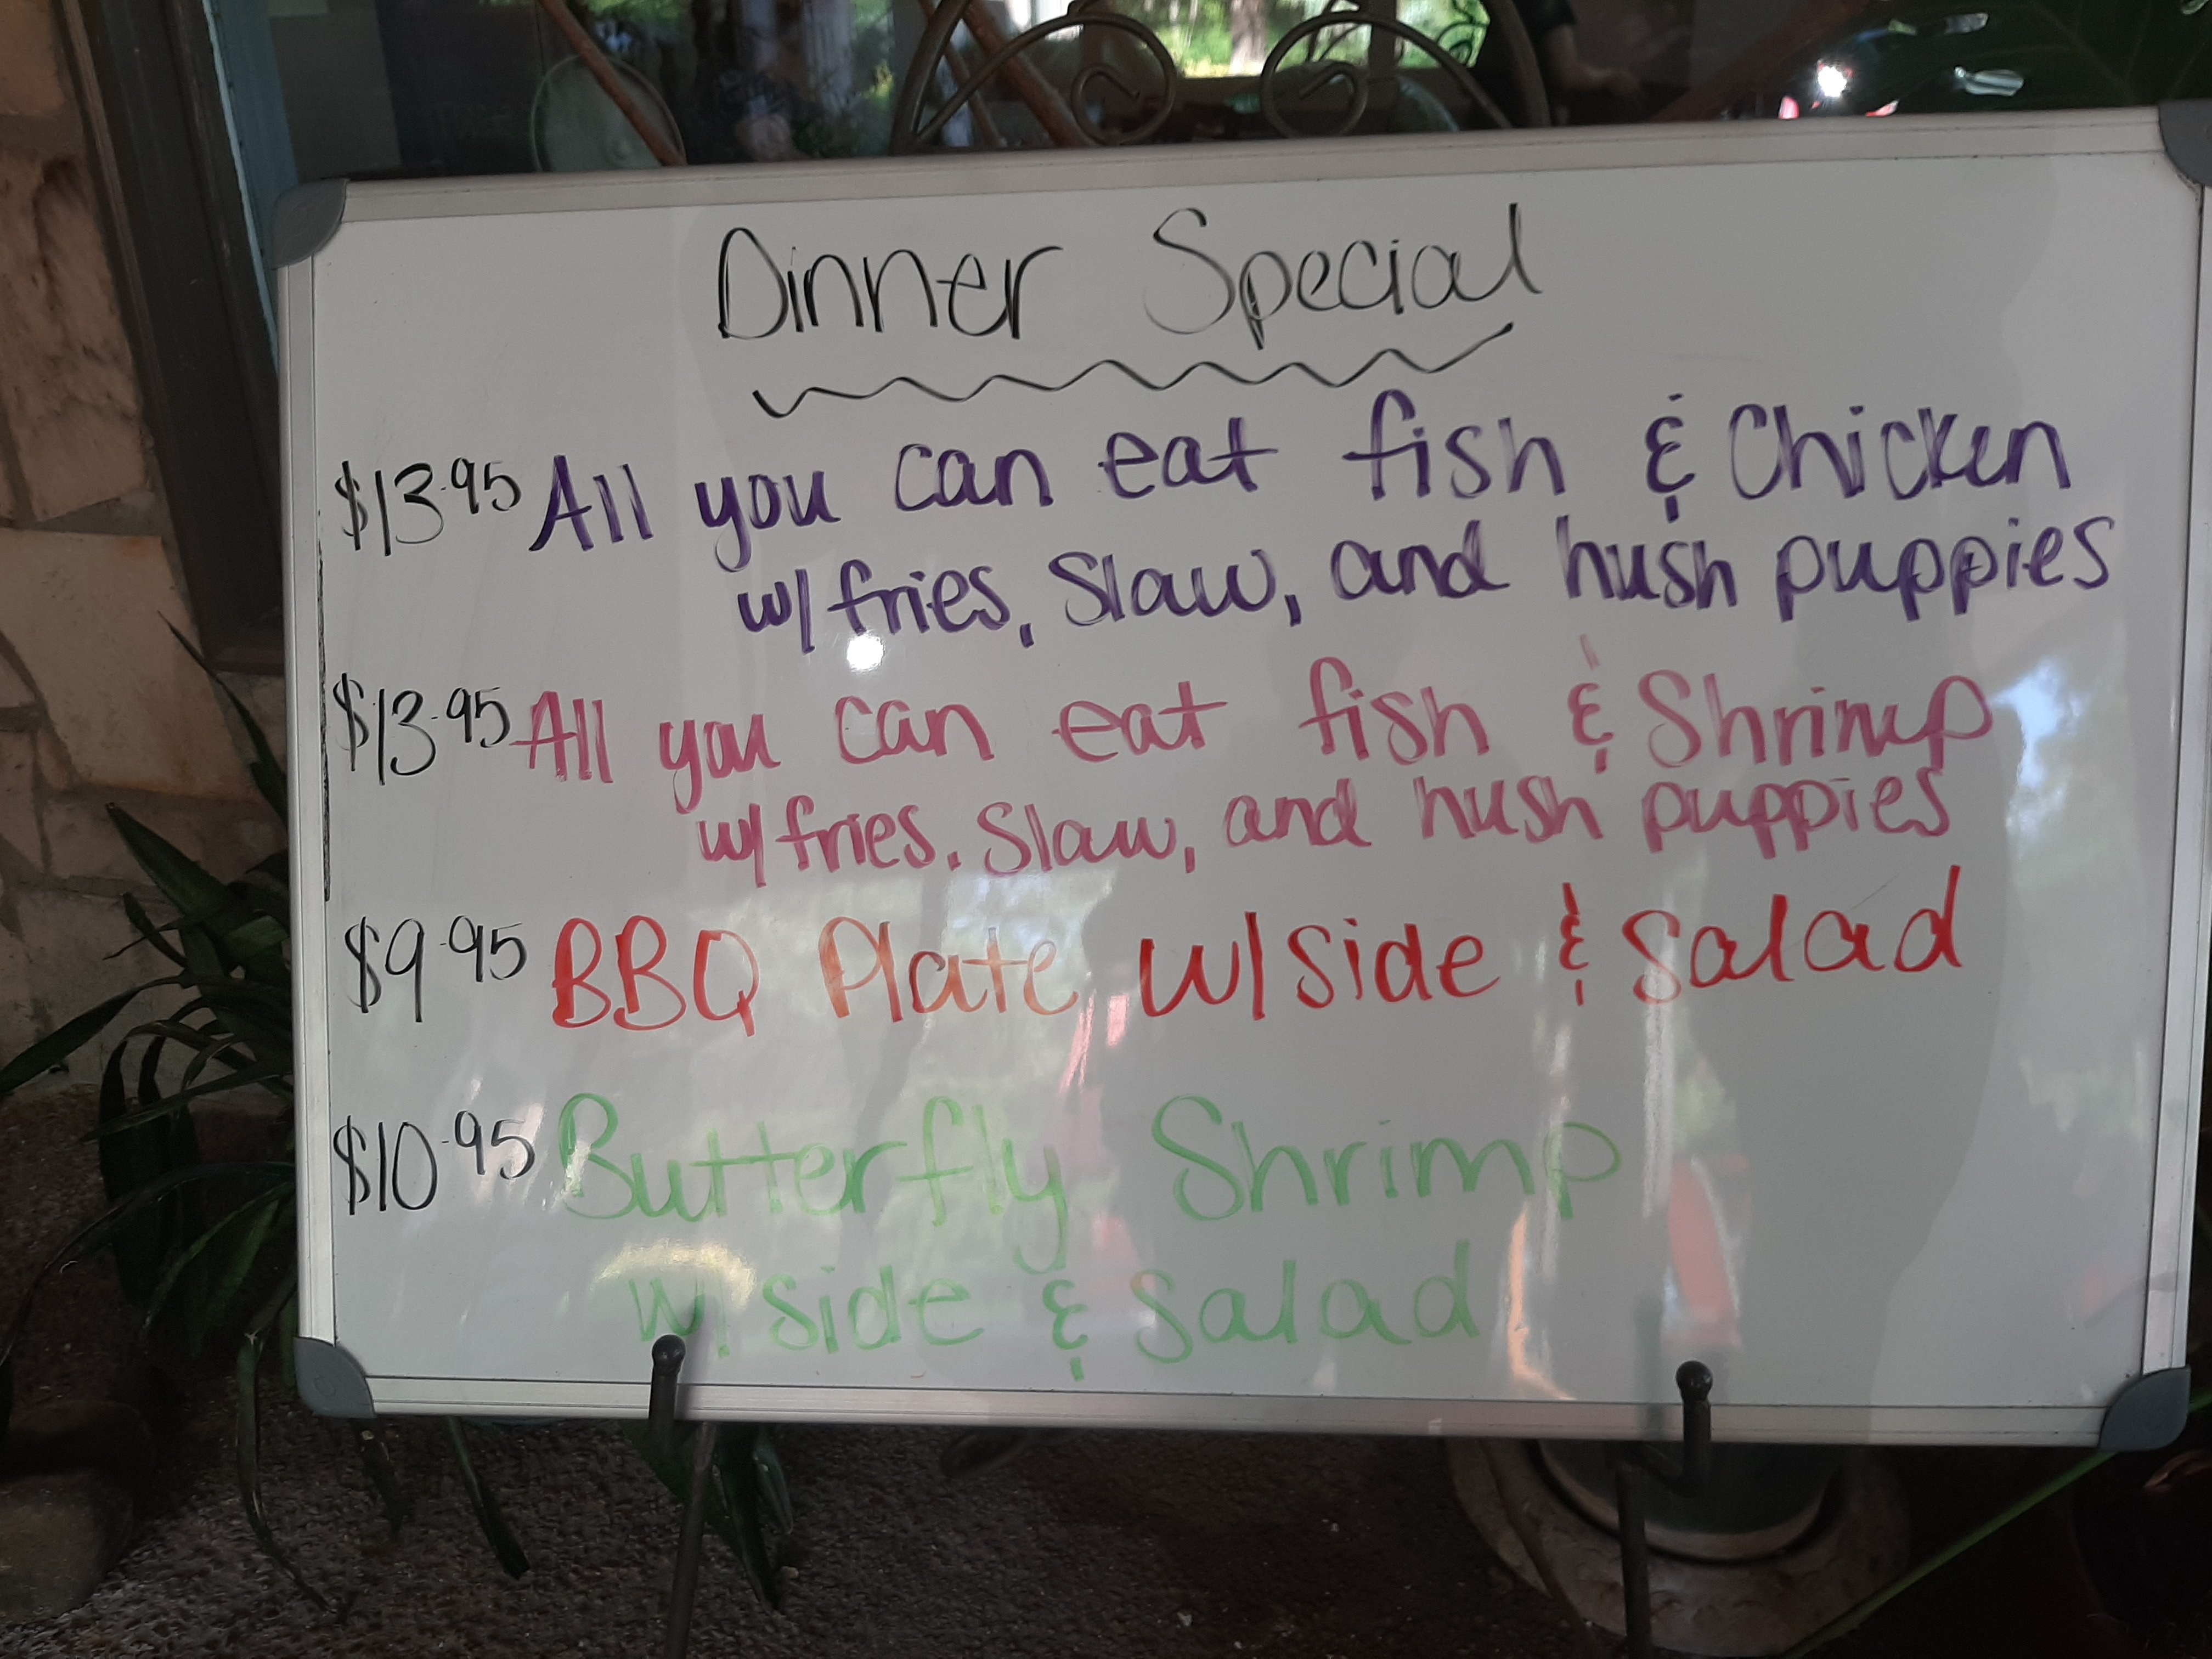 Dinner Special
$13.95 All you can eat fish & Chicken
w/ fries, Slaw, and hush puppies
$13.95 All you can eat fish & Shrimp
w/ fries, Slaw, and hush puppies
$9.95 BBQ Plate w/ side & Salad
$10.95 Butterfly Shrimp
w/ side & Salad